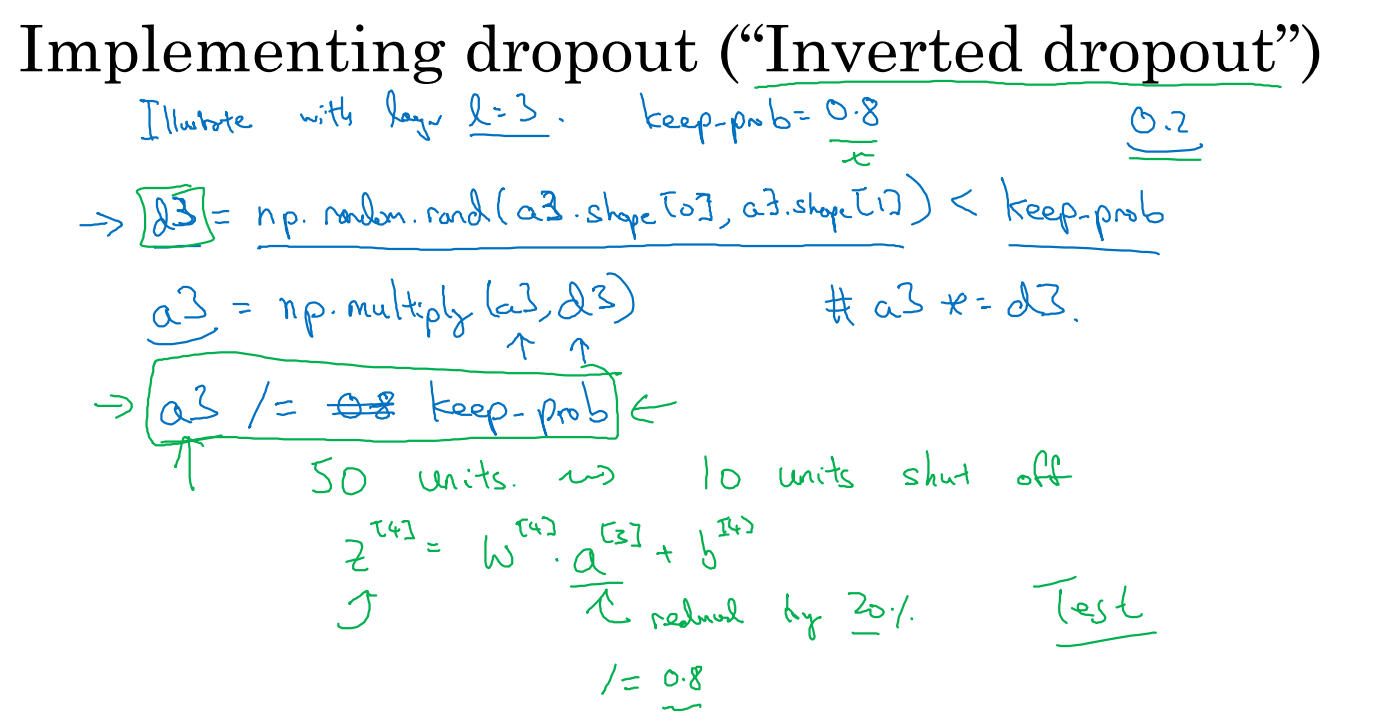 Implementing dropout (“Inverted dropout”)
Illustrate with layer l=3. keep-prob= 0.8 0.2
→ d3 = np.random.rand(a3.shape[0], a3.shape[1]) < keep-prob
a3 = np.multiply(a3, d3) # a3 *= d3.
→ a3 /= 0.8 keep-prob ←
50 units. ⇝ 10 units shut off
z[4] = W[4] . a[3] + b[4]
reduced by 20%. Test
/= 0.8